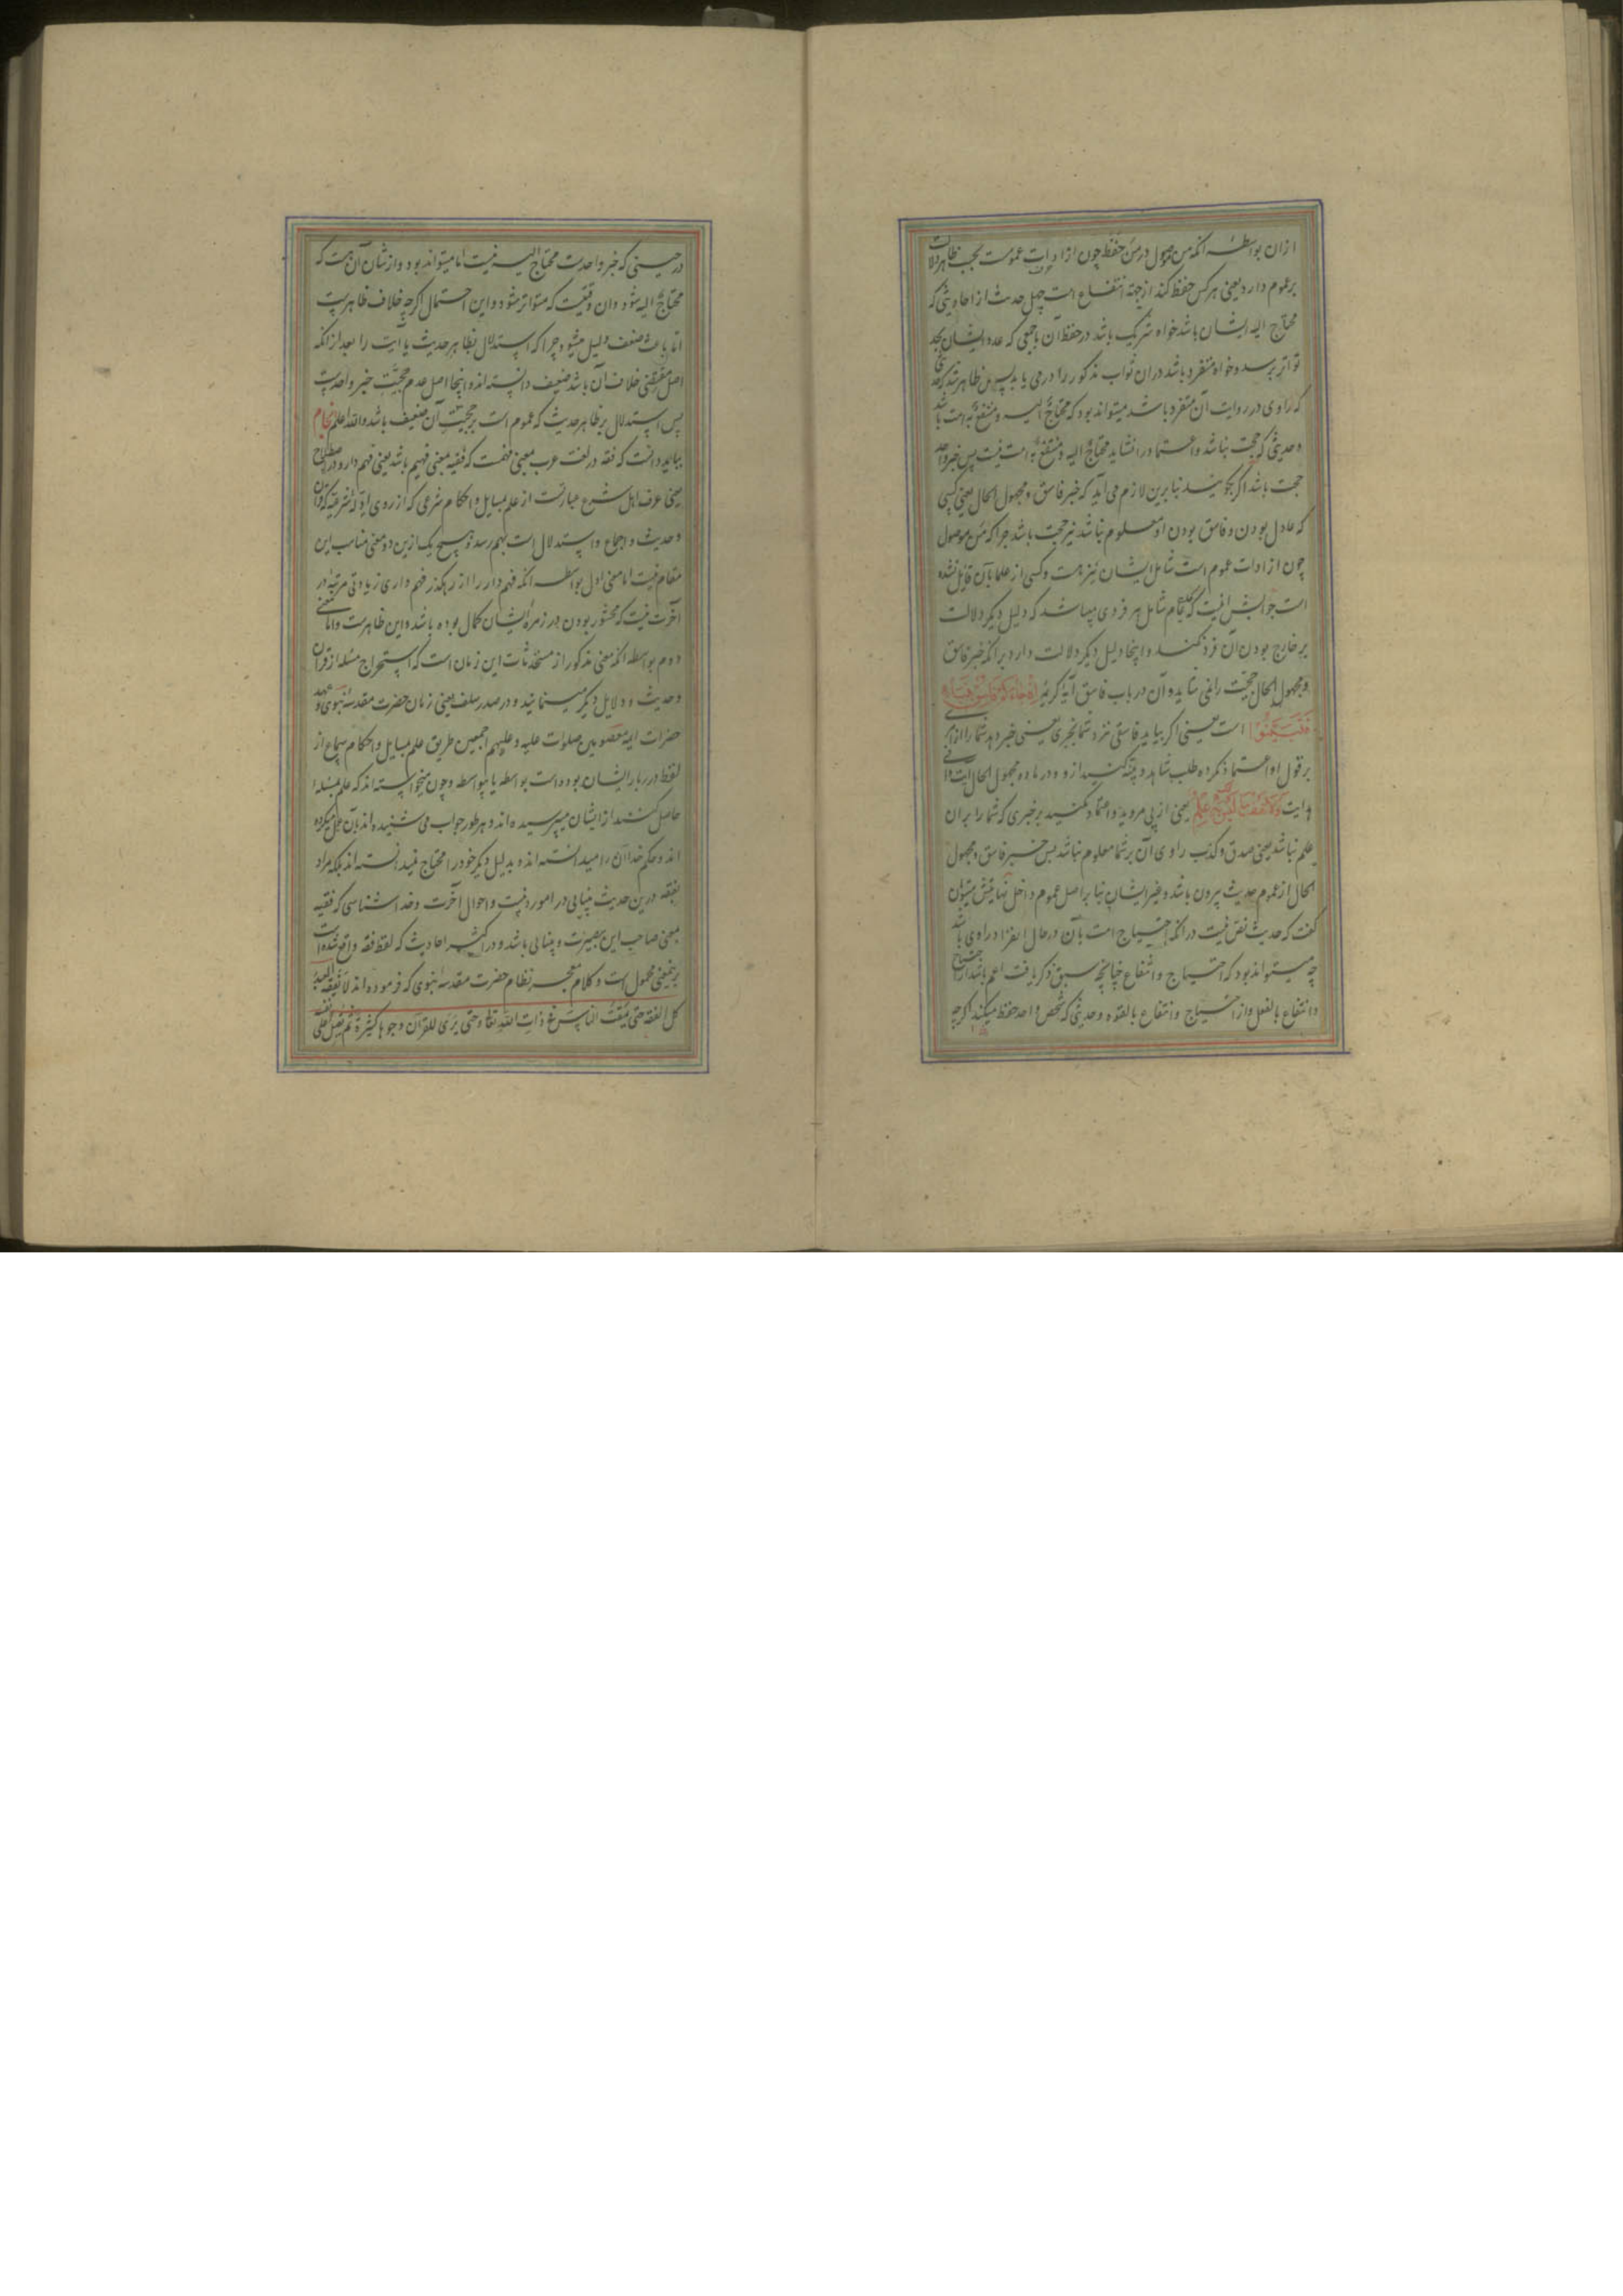 ازان بواسطه انکه من موصول در من حفظ چون از ادات عمومست بحسب ظاهر دلالت
بر عموم دارد یعنی هر کس حفظ کند از جهة انتفاع امت چهل حدیث از احادیثی که
محتاج الیه ایشان باشد خواه شریک باشد در حفظ آن باجمعی که عدد ایشان بحد
تواتر برسد و خواه متفرد باشد دران ثواب مذکور را درمی یابد پس ظاهر شد که
که راوی در روایت آن متفرد باشد میتواند بود که محتاج الیه و منتفع به امت باشد
و حدیثی که حجت نباشد و اعتماد را نشاید محتاج الیه و منتفع به امت نیست پس خبر واحد
حجت باشد اکر کویند بنابرین لازم می آید که خبر فاسق و مجهول الحال یعنی کسی
که عادل بودن و فاسق بودن او معلوم نباشد نیز حجت باشد چرا که من موصول
چون از ادات عموم است شامل ایشان نیز هست و کسی از علما بآن قایل نشده
است جوابش اینست که عام شامل هر فردی میباشد که دلیل دیکر دلالت
بر خارج بودن آن فرد نکند و اینجا دلیل دیکر دلالت دارد بر انکه خبر فاسق
و مجهول الحال حجیت را نمی شاید و آن در باب فاسق آیه کریمه ان جاءکم فاسق بنباء
فتبینوا است یعنی اکر بیاید فاسقی نزد شما بخبری یعنی خبر دهد شما را از امری
بر قول او اعتماد نکرده طلب شاهد و بینه کنید ازو و در ماده مجهول الحال
آیت ولا تقف ما لیس لک به علم یعنی از پی مروید و اعتماد مکنید بر خبری که شما را بران
علم نباشد یعنی صدق و کذب راوی آن بر شما معلوم نباشد پس خبر فاسق و مجهول
الحال از عموم حدیث بیرون باشد و غیر ایشان بنا بر اصل عموم داخل نهایتش میتوان
کفت که حدیث نص نیست در انکه احتیاج امت بآن در حال انفراد راوی باشد
چه میتواند بود که احتیاج و انتفاع چنانچه سبق ذکر یافت اعم باشد از احتیاج
و انتفاع بالفعل و از احتیاج و انتفاع بالقوه و حدیثی که شخص واحد حفظ میکند اکرچه
در حینی که خبر واحدست محتاج الیه نیست اما میتواند بود و از شان آن هست که
محتاج الیه شود و ان وقتیست که متواتر شود و این احتمال اکرچه خلاف ظاهرست
اما باعث ضعف دلیل میشود چرا که استدلال بظاهر حدیث یا آیت را بعد از انکه
اصل مقتضی خلاف آن باشد ضعیف دانسته اند و اینجا اصل عدم حجیت خبر واحدست
پس استدلال بر ظاهر حدیث که عموم است بر حجیت آن ضعیف باشد والله اعلم
بباید دانست که فقه در لغت عرب بمعنی فهمست که فقیه بمعنی فهیم باشد یعنی فهم دار و در اصطلاح
یعنی عرف اهل شرع عبارتست از علم بمسایل و احکام شرعی که از روی ادله شرعیه که قران
و حدیث و اجماع و استدلال است بهم رسد و هیچ یک ازین دو معنی مناسب این
مقام نیست اما معنی اول بواسطه انکه فهم دار را از رهکذر فهم داری زیادتی مرتبه در
آخرت نیست که محشور بودن در زمره ایشان کمال بوده باشد و این ظاهرست و اما معنی
دوم بواسطه انکه معنی مذکور از مستحدثات این زمان است که استخراج مسئله از قران
و حدیث و دلایل دیکر مینمایند و در صدر سلف یعنی زمان حضرت مقدسه نبوی و عهد
حضرات ایمه معصومین صلوات علیه و علیهم اجمعین طریق علم بمسایل و احکام سماع از
لفظ درربار ایشان بوده است بواسطه یا بیواسطه و چون میخواسته اند که علم بمسئله
حاصل کنند از ایشان میپرسیده اند و هر طور جواب می شنیده اند بآن عمل میکرده
اند و حکم خدا آن را میدانسته اند و بدلیل دیکر خود را محتاج نمیدانسته اند بلکه مراد
بفقه درین حدیث بینایی در امور دینیست و احوال آخرت و خداشناسی که فقیه
بمعنی صاحب این بصیرت و بینایی باشد و در اکثر احادیث که لفظ فقه واقع شده است
برینمعنی محمول است و کلام معجز نظام حضرت مقدسه نبوی که فرموده اند لا یفقه العبد
کل الفقه حتی یمقت الناس فی ذات الله تعا و حتی یری للقرآن وجوها کثیرة ثم یقبل علی نفسه